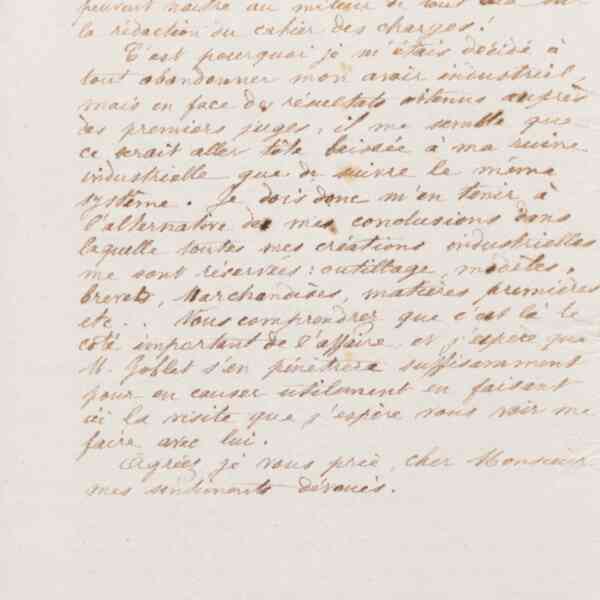 peuvent naître au milieu de tout cela sur
la rédaction du cahier des charges !
C'est pourquoi je m'étais décidé à
tout abandonner mon avoir industriel,
mais en face des résultats obtenus auprès
des premiers juges, il me semble que
ce serait aller tête baissée à ma ruine
industrielle que de suivre le même
système. Je dois donc m'en tenir à
l'alternative de mes conclusions dans
laquelle toutes mes créations industrielles
me sont réservées : outillage, modèles,
brevets, Marchandises, matières premières
etc.. Vous comprendrez que c'est là le
côté important de l'affaire et j'espère que
M. Joblet s'en pénètrera suffisamment
pour en causer utilement en faisant
ici la visite que j'espère vous voir me
faire avec lui.
Agréez je vous prie, cher Monsieur
mes sentiments dévoués.